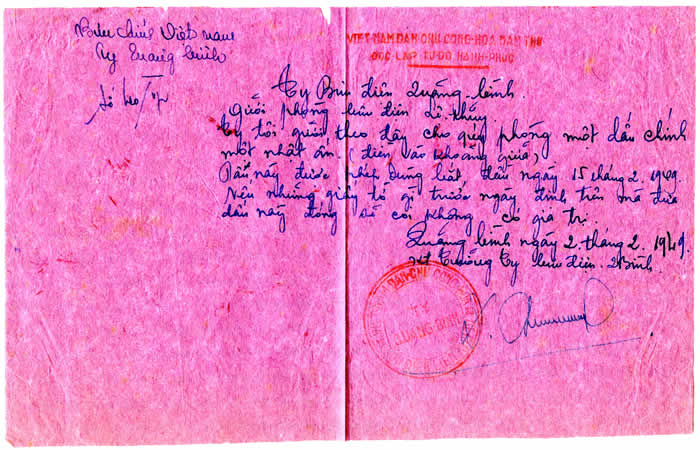 Bưu chính Việt nam
Ty Quảng bình
Số
VIỆT-NAM DÂN CHỦ CỘNG-HÒA DÂN THỨ
ĐỘC-LẬP TỰ-DO HẠNH-PHÚC
Ty Bưu điện Quảng-bình
gửi phòng bưu điện Lệ thủy
Ty tôi gửi theo đây cho quý phòng một dấu chính
một nhật ấn. (điền vào khoảng giữa)
Dấu này được phép dùng bắt đầu ngày 15 tháng 2. 1949.
Nếu những giấy tờ gì trước ngày định trên mà đưa
dấu này đóng sẽ coi không có giá trị.
Quảng bình ngày 2. tháng 2. 1949.
Trưởng Ty bưu điện Q Bình
DÂN-CHỦ CỘNG-HÒA
QUẢNG BÌNH